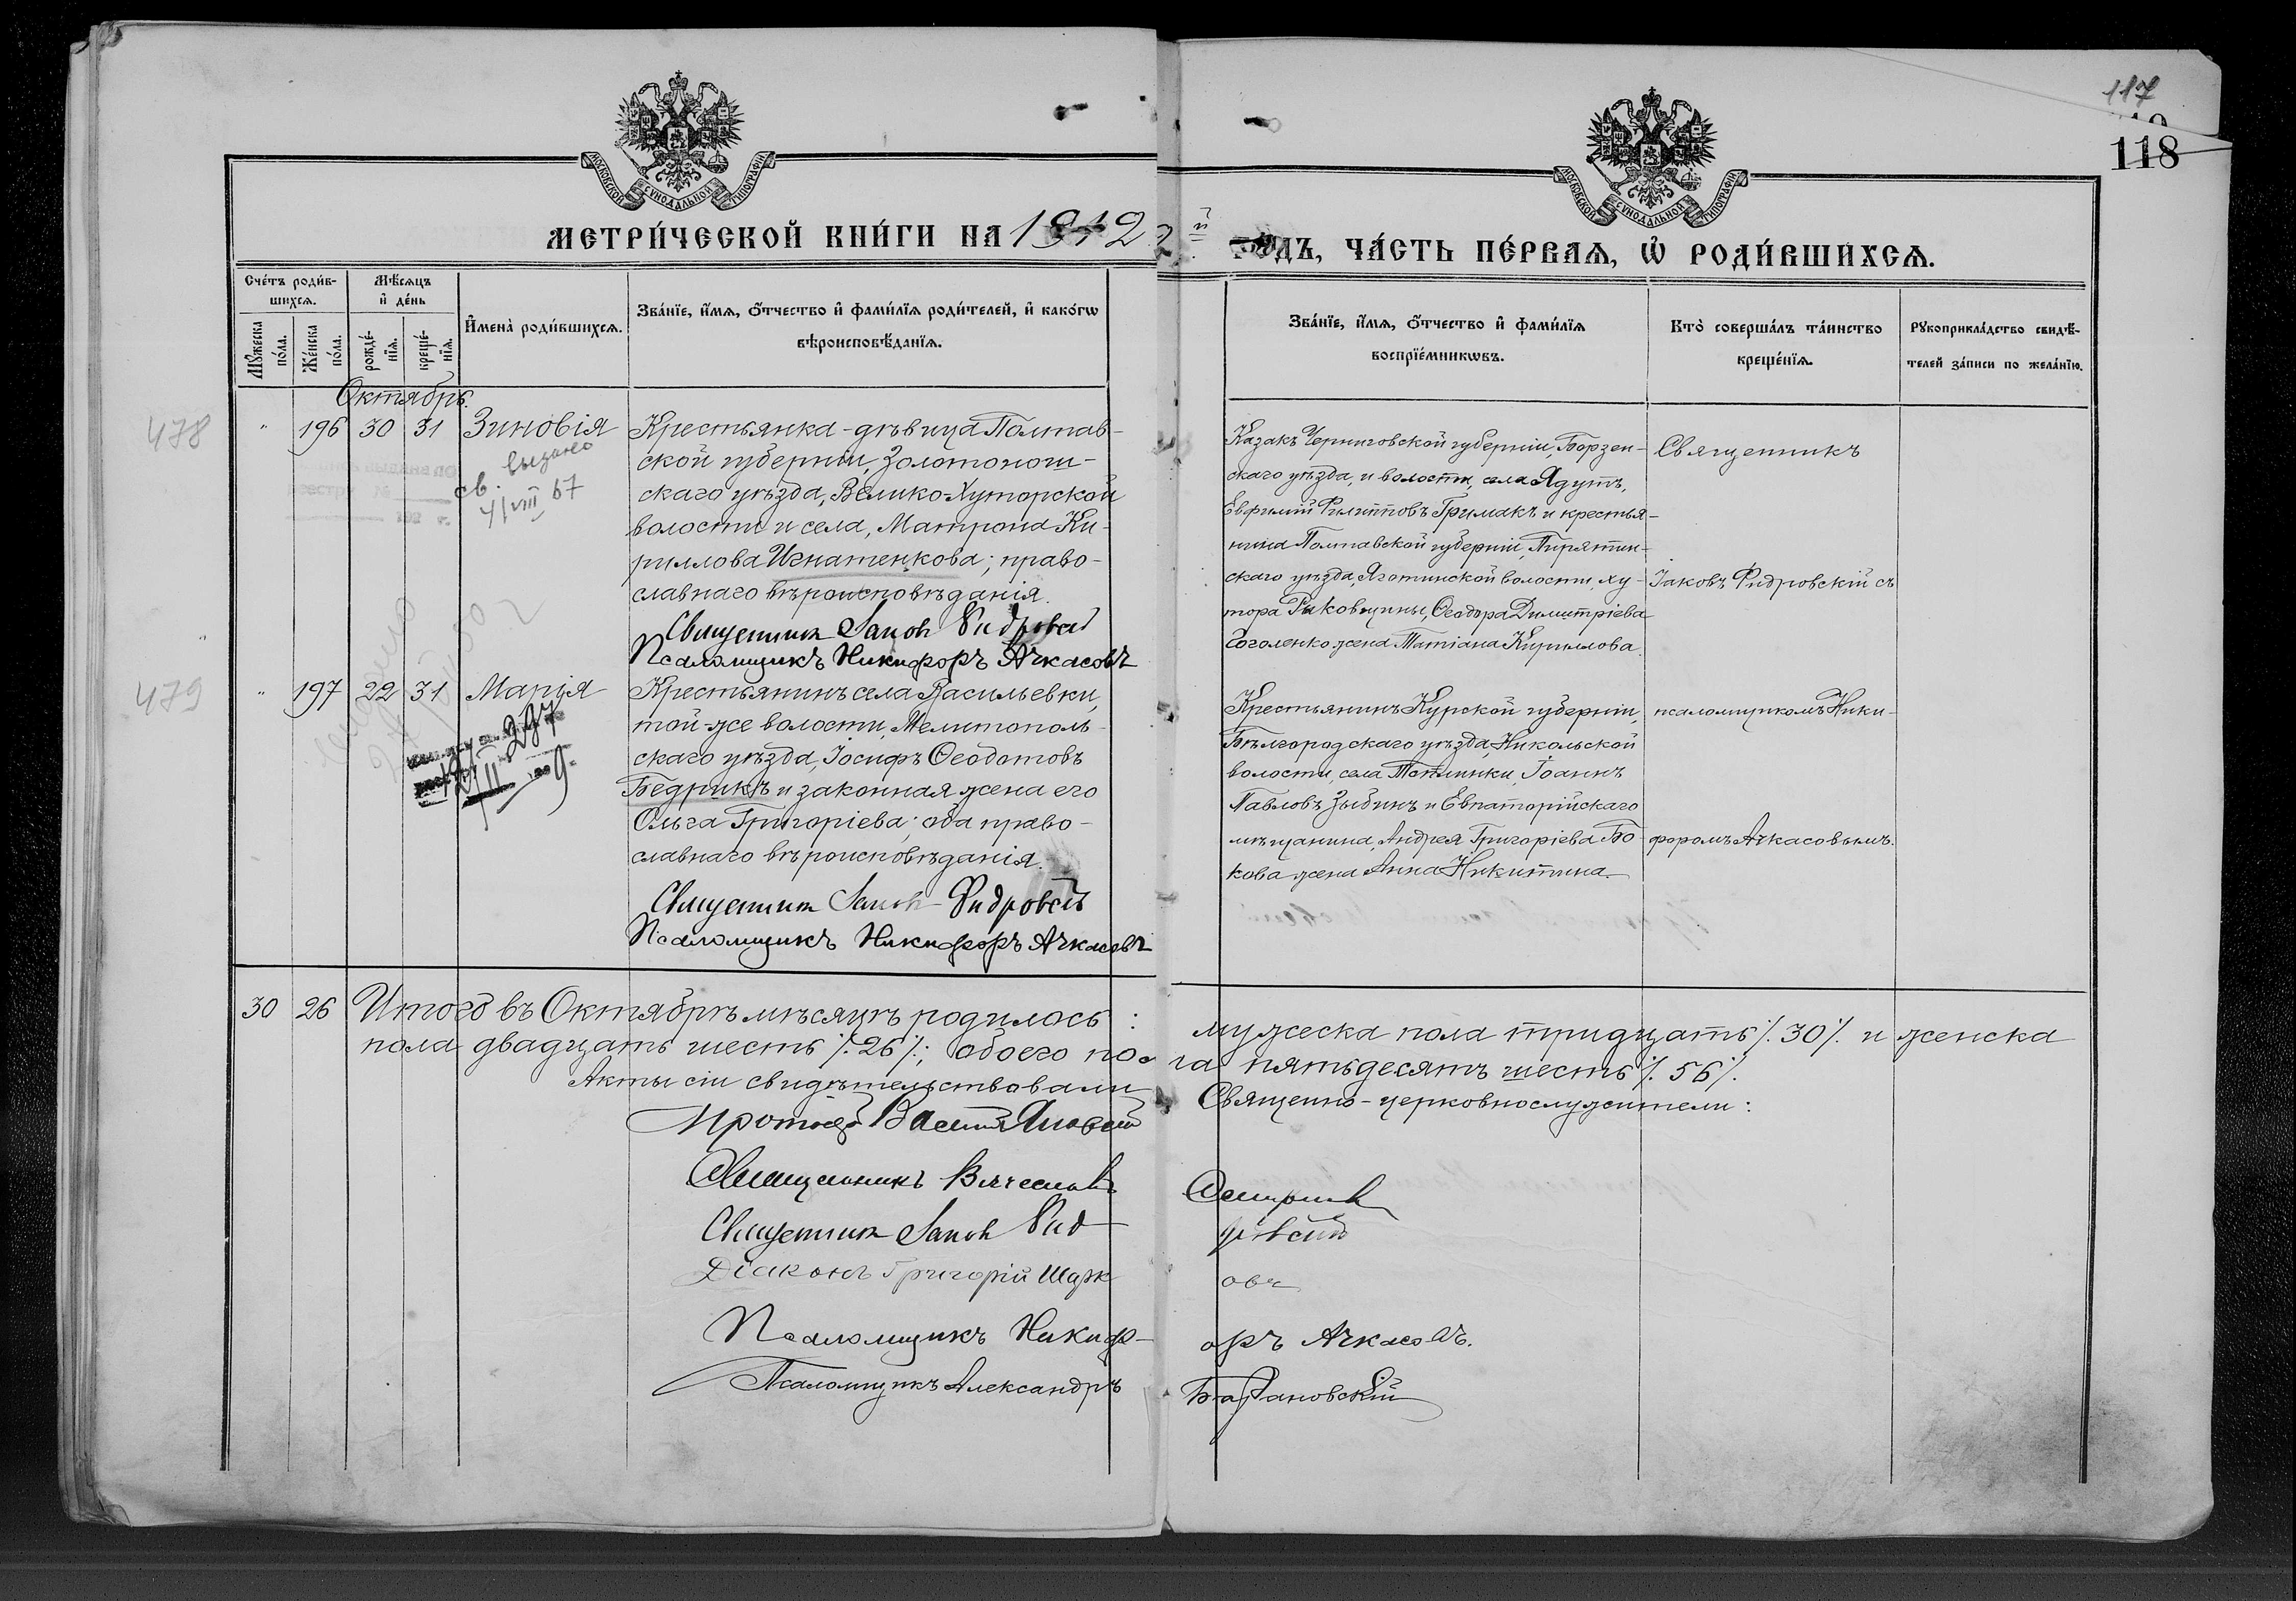 117
118
МОСКОВСКОЙ СѴНОДАЛЬНОЙ ТИПОГРАФІИ
МОСКОВСКОЙ СѴНОДАЛЬНОЙ ТИПОГРАФІИ
МЕТРИ́ЧЕСКОЙ КНИ́ГИ НА 1912
й ГОДЪ, ЧА́СТЬ ПЕ́РВАЯ, Ѽ РОДИ́ВШИХСЯ.
Сче́тъ роди́в-
шихся.
Мꙋжеска по́ла.
Же́нска по́ла.
Мѣ́сяцъ и҆ де́нь
рожде́-
нїя.
креще́-
нїя.
И҆мена̀ роди́вшихся.
Зва́нїе, и҆́мя, ѻ҆́тчество и҆ фами́лїя роди́телей, и҆ како́гѡ
вѣроисповѣ́данїя.
Зва́нїе, и҆́мя, ѻ҆́тчество и҆ фами́лїя
воспрїе́мникѡвъ.
Кто̀ соверша́лъ та́инство
креще́нїя.
Рꙋкоприкла́дство свидѣ́-
телей за́писи по жела́нїю.
Октябрь.
478
" 196 30 31 Зиновія
св. выдано
4/VIII 67
Крестьянка-дѣвица Полтав-
ской губерніи, Золотонош-
скаго уѣзда, Велико-Хуторской
волости и села, Матрона Ки-
риллова Игнатенкова; право-
славнаго вѣроисповѣданія.
Священник Іаков Фидровскій
Псаломщикъ Никифоръ Ачкасовъ
Казакъ Черниговской губерніи, Борзен-
скаго уѣзда, и волости, села Ядутъ,
Евфимій Филипповъ Гримакъ и крестья-
нина Полтавской губерніи, Пирятин-
скаго уѣзда, Яготинской волости, ху-
тора Рыковщины, Ѳеодора Димитріева
Гоголенко жена Татіана Кириллова.
Священникъ
Іаковъ Фидровскій съ
479
" 197 22 31 Марія
237
Крестьянинъ села Васильевки,
той-же волости, Мелитополь-
скаго уѣзда, Іосифъ Ѳеодотовъ
Бедрикъ и законная жена его
Ольга Григоріева; оба право-
славнаго вѣроисповѣданія.
Священник Іаков Фидровскій
Псаломщикъ Никифоръ Ачкасовъ
Крестьянинъ Курской губерніи,
Бѣлгородскаго уѣзда, Никольской
волости, села Теплинки, Іоаннъ
Павловъ Зыбинъ и Евпаторійскаго
мѣщанина, Андрея Григоріева Бо-
кова жена Анна Никитина.
псаломщикомъ Ники-
форомъ Ачкасовымъ.
30 26 Итого въ Октябрѣ мѣсяцѣ родилось: мужеска пола тридцать /. 30 /. и женска
пола двадцать шесть /. 26 /.; обоего пола пятьдесятъ шесть /. 56 /.
Акты сіи свидѣтельствовали Священно-церковнослужители:
Священникъ Вячеславъ
Священник Іаков Фидровскій
Діаконъ Григорій Шарковъ
Псаломщикъ Никифоръ Ачкасовъ.
Псаломщикъ Александръ Барановскій